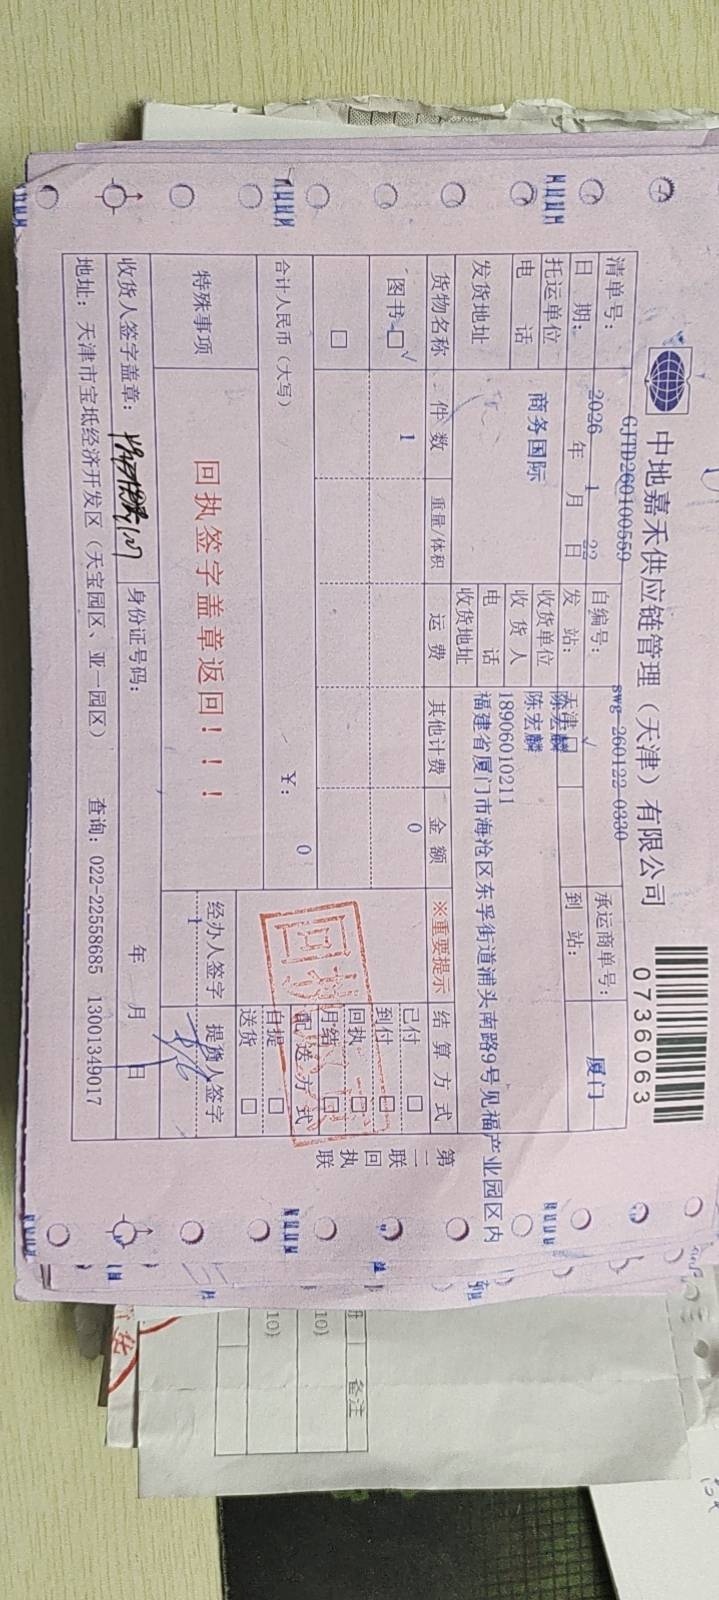 中地嘉禾供应链管理（天津）有限公司
0736063
清单号： GJTD260100559 自编号： swg-260122-0330 承运商单号：
日 期： 2026 年 1 月 22 日 发 站： 天津 √ 到 站： 厦门
托运单位 商务国际 收货单位 陈宏麟
电 话 收 货 人 陈宏麟
发货地址 电 话 18906010211
收货地址 福建省厦门市海沧区东孚街道浦头南路9号见福产业园区内
货物名称 件 数 重量/体积 运 费 其他计费 金 额 ※重要提示 结 算 方 式
图书 □√ 1 0 已付 □
到付 □
□ 回执 □
月结 □
合计人民币（大写） ￥： 0 配 送 方 式
自提 □
送货 □
特殊事项 回执签字盖章返回！！！ 经办人签字 提货人签字
1
收货人签字盖章： 身份证号码： 年 月 日
地址：天津市宝坻经济开发区（天宝园区、亚一园区） 查询：022-22558685 13001349017
第二联 回执联
回执
备注
10)
10)